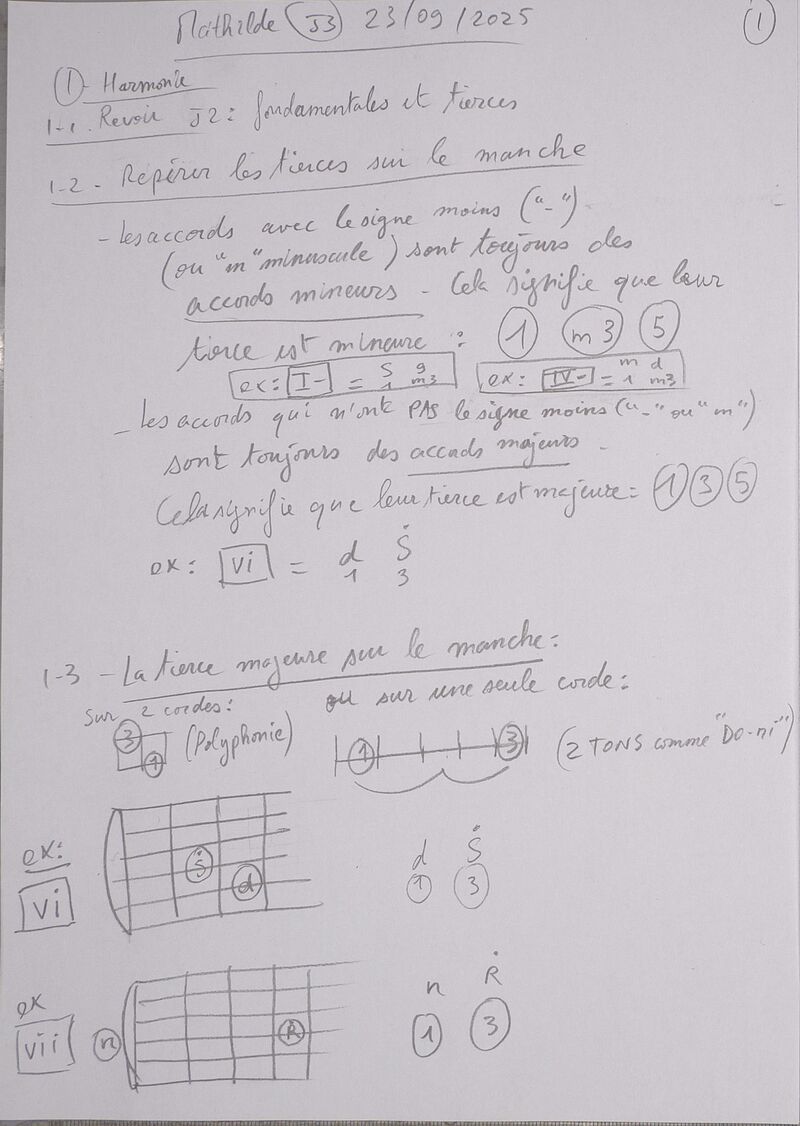 Mathilde J3 23/09/2025 1
1- Harmonie
1-1. Revoir J2 : fondamentales et tierces
1-2 - Repérer les tierces sur le manche
- Les accords avec le signe moins ("-")
(ou "m" minuscule) sont toujours des
accords mineurs - Cela signifie que leur
tierce est mineure : 1 m3 5
ex: I- = S g ex: IV- = m d
1 m3 1 m3
- Les accords qui n'ont PAS le signe moins ("-" ou "m")
sont toujours des accords majeurs -
Cela signifie que leur tierce est majeure = 1 3 5
ex: vi = d Ṡ
1 3
1-3 - La tierce majeure sur le manche :
Sur 2 cordes : ou sur une seule corde :
3 1 (Polyphonie) 1 3 (2 TONS comme "Do-mi")
ex: d Ṡ
vi Ṡ d 1 3
ex n Ṙ
vii n R 1 3